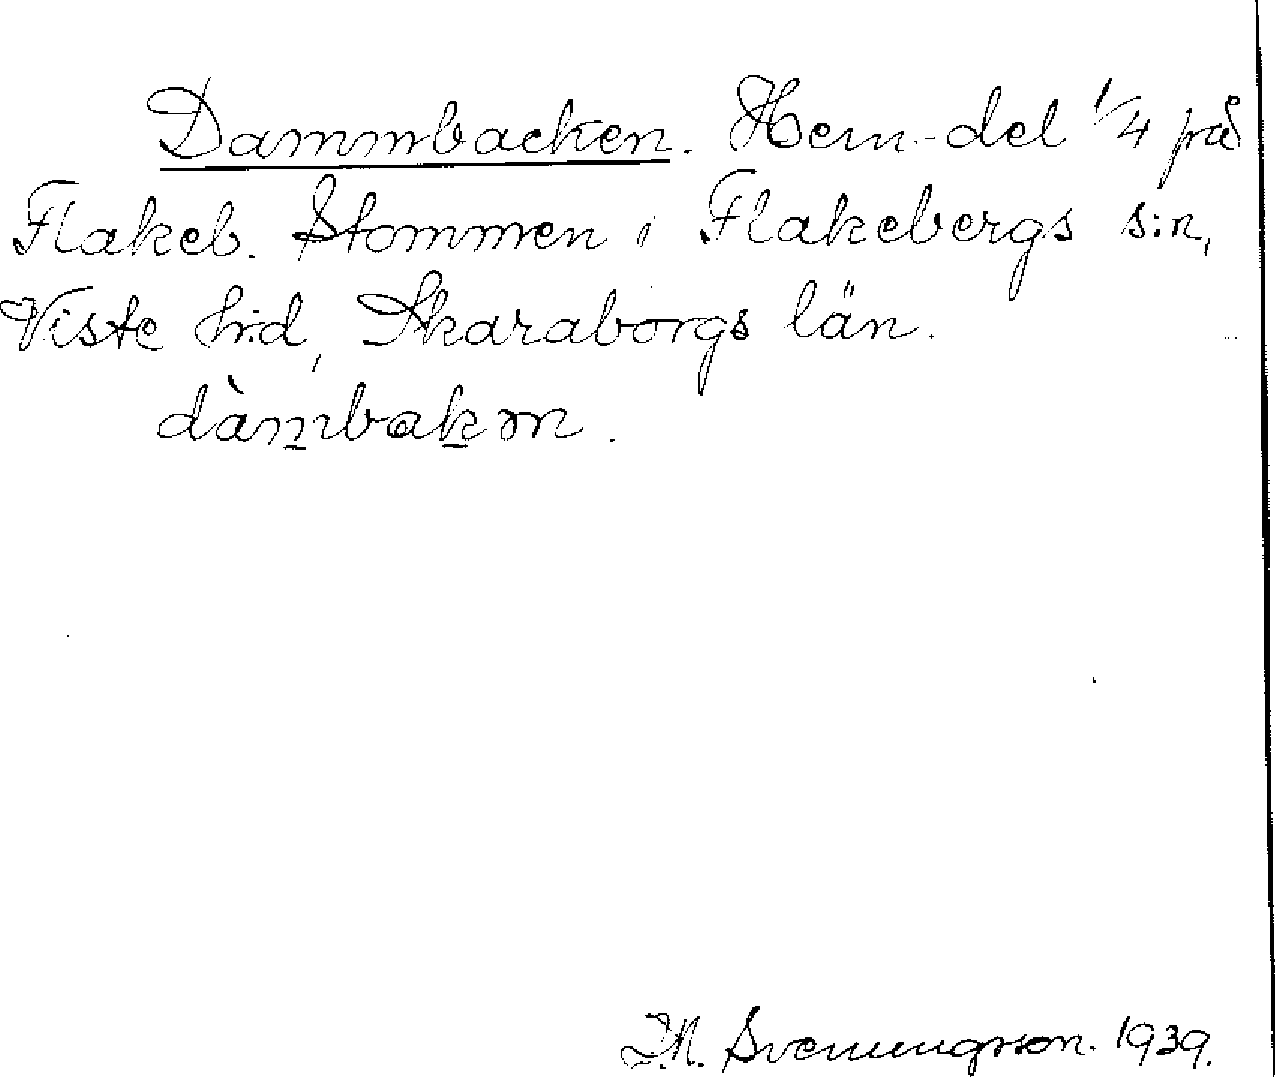 Dammbacken. Hem.-del 1/4 på
Flakeb. Stommen i Flakebergs s:n,
Viste h:d, Skaraborgs län.
dàmbakən.
J.M. Svenungsson. 1939.